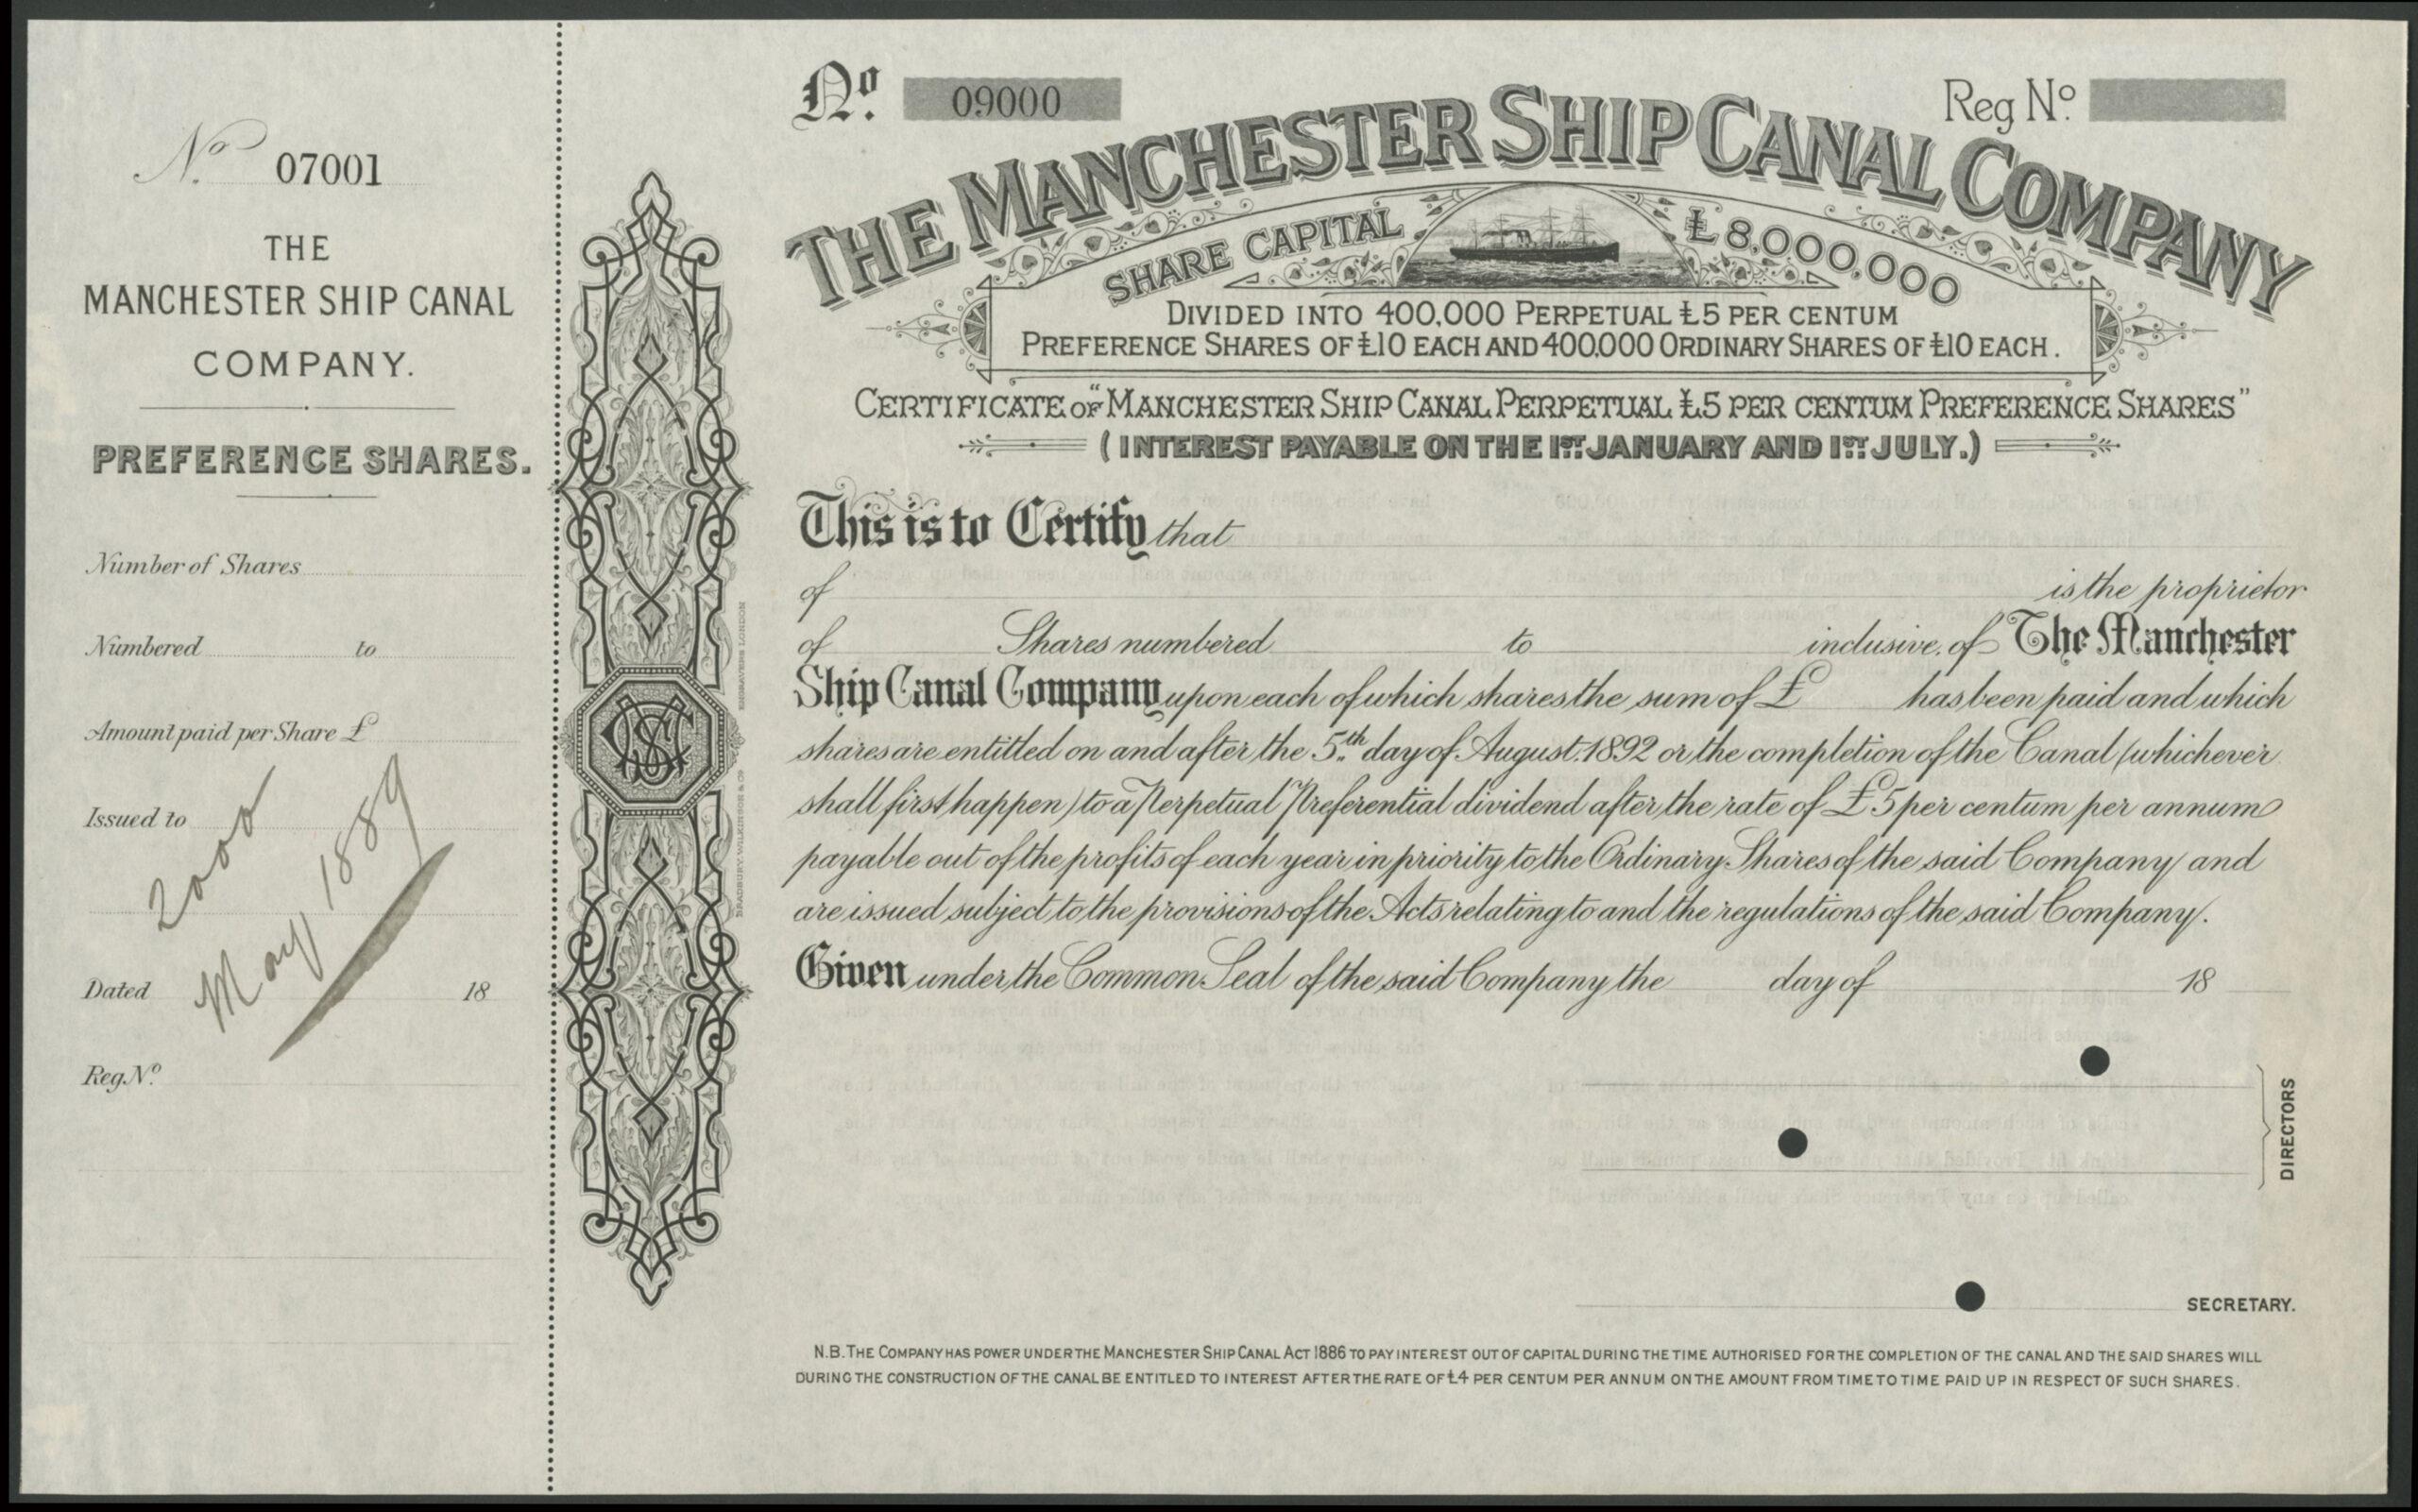 No. 07001
THE
MANCHESTER SHIP CANAL
COMPANY.
PREFERENCE SHARES.
Number of Shares
Numbered to
Amount paid per Share £
Issued to
2000
May 1889
Dated 18
Reg. No.
BRADBURY WILKINSON & CO ENGRAVERS LONDON
No. 09000
Reg No.
THE MANCHESTER SHIP CANAL COMPANY
SHARE CAPITAL £8,000,000
DIVIDED INTO 400,000 PERPETUAL £5 PER CENTUM
PREFERENCE SHARES OF £10 EACH AND 400,000 ORDINARY SHARES OF £10 EACH.
CERTIFICATE OF "MANCHESTER SHIP CANAL PERPETUAL £5 PER CENTUM PREFERENCE SHARES"
(INTEREST PAYABLE ON THE 1ST JANUARY AND 1ST JULY.)
This is to Certify that
of is the proprietor
of Shares numbered to inclusive. of The Manchester
Ship Canal Company upon each of which shares the sum of £ has been paid and which
shares are entitled on and after the 5th day of August. 1892 or the completion of the Canal (whichever
shall first happen) to a Perpetual Preferential dividend after the rate of £5 per centum per annum
payable out of the profits of each year in priority to the Ordinary Shares of the said Company and
are issued subject to the provisions of the Acts relating to and the regulations of the said Company.
Given under the Common Seal of the said Company the day of 18
DIRECTORS
SECRETARY.
N.B. THE COMPANY HAS POWER UNDER THE MANCHESTER SHIP CANAL ACT 1886 TO PAY INTEREST OUT OF CAPITAL DURING THE TIME AUTHORISED FOR THE COMPLETION OF THE CANAL AND THE SAID SHARES WILL
DURING THE CONSTRUCTION OF THE CANAL BE ENTITLED TO INTEREST AFTER THE RATE OF £4 PER CENTUM PER ANNUM ON THE AMOUNT FROM TIME TO TIME PAID UP IN RESPECT OF SUCH SHARES.